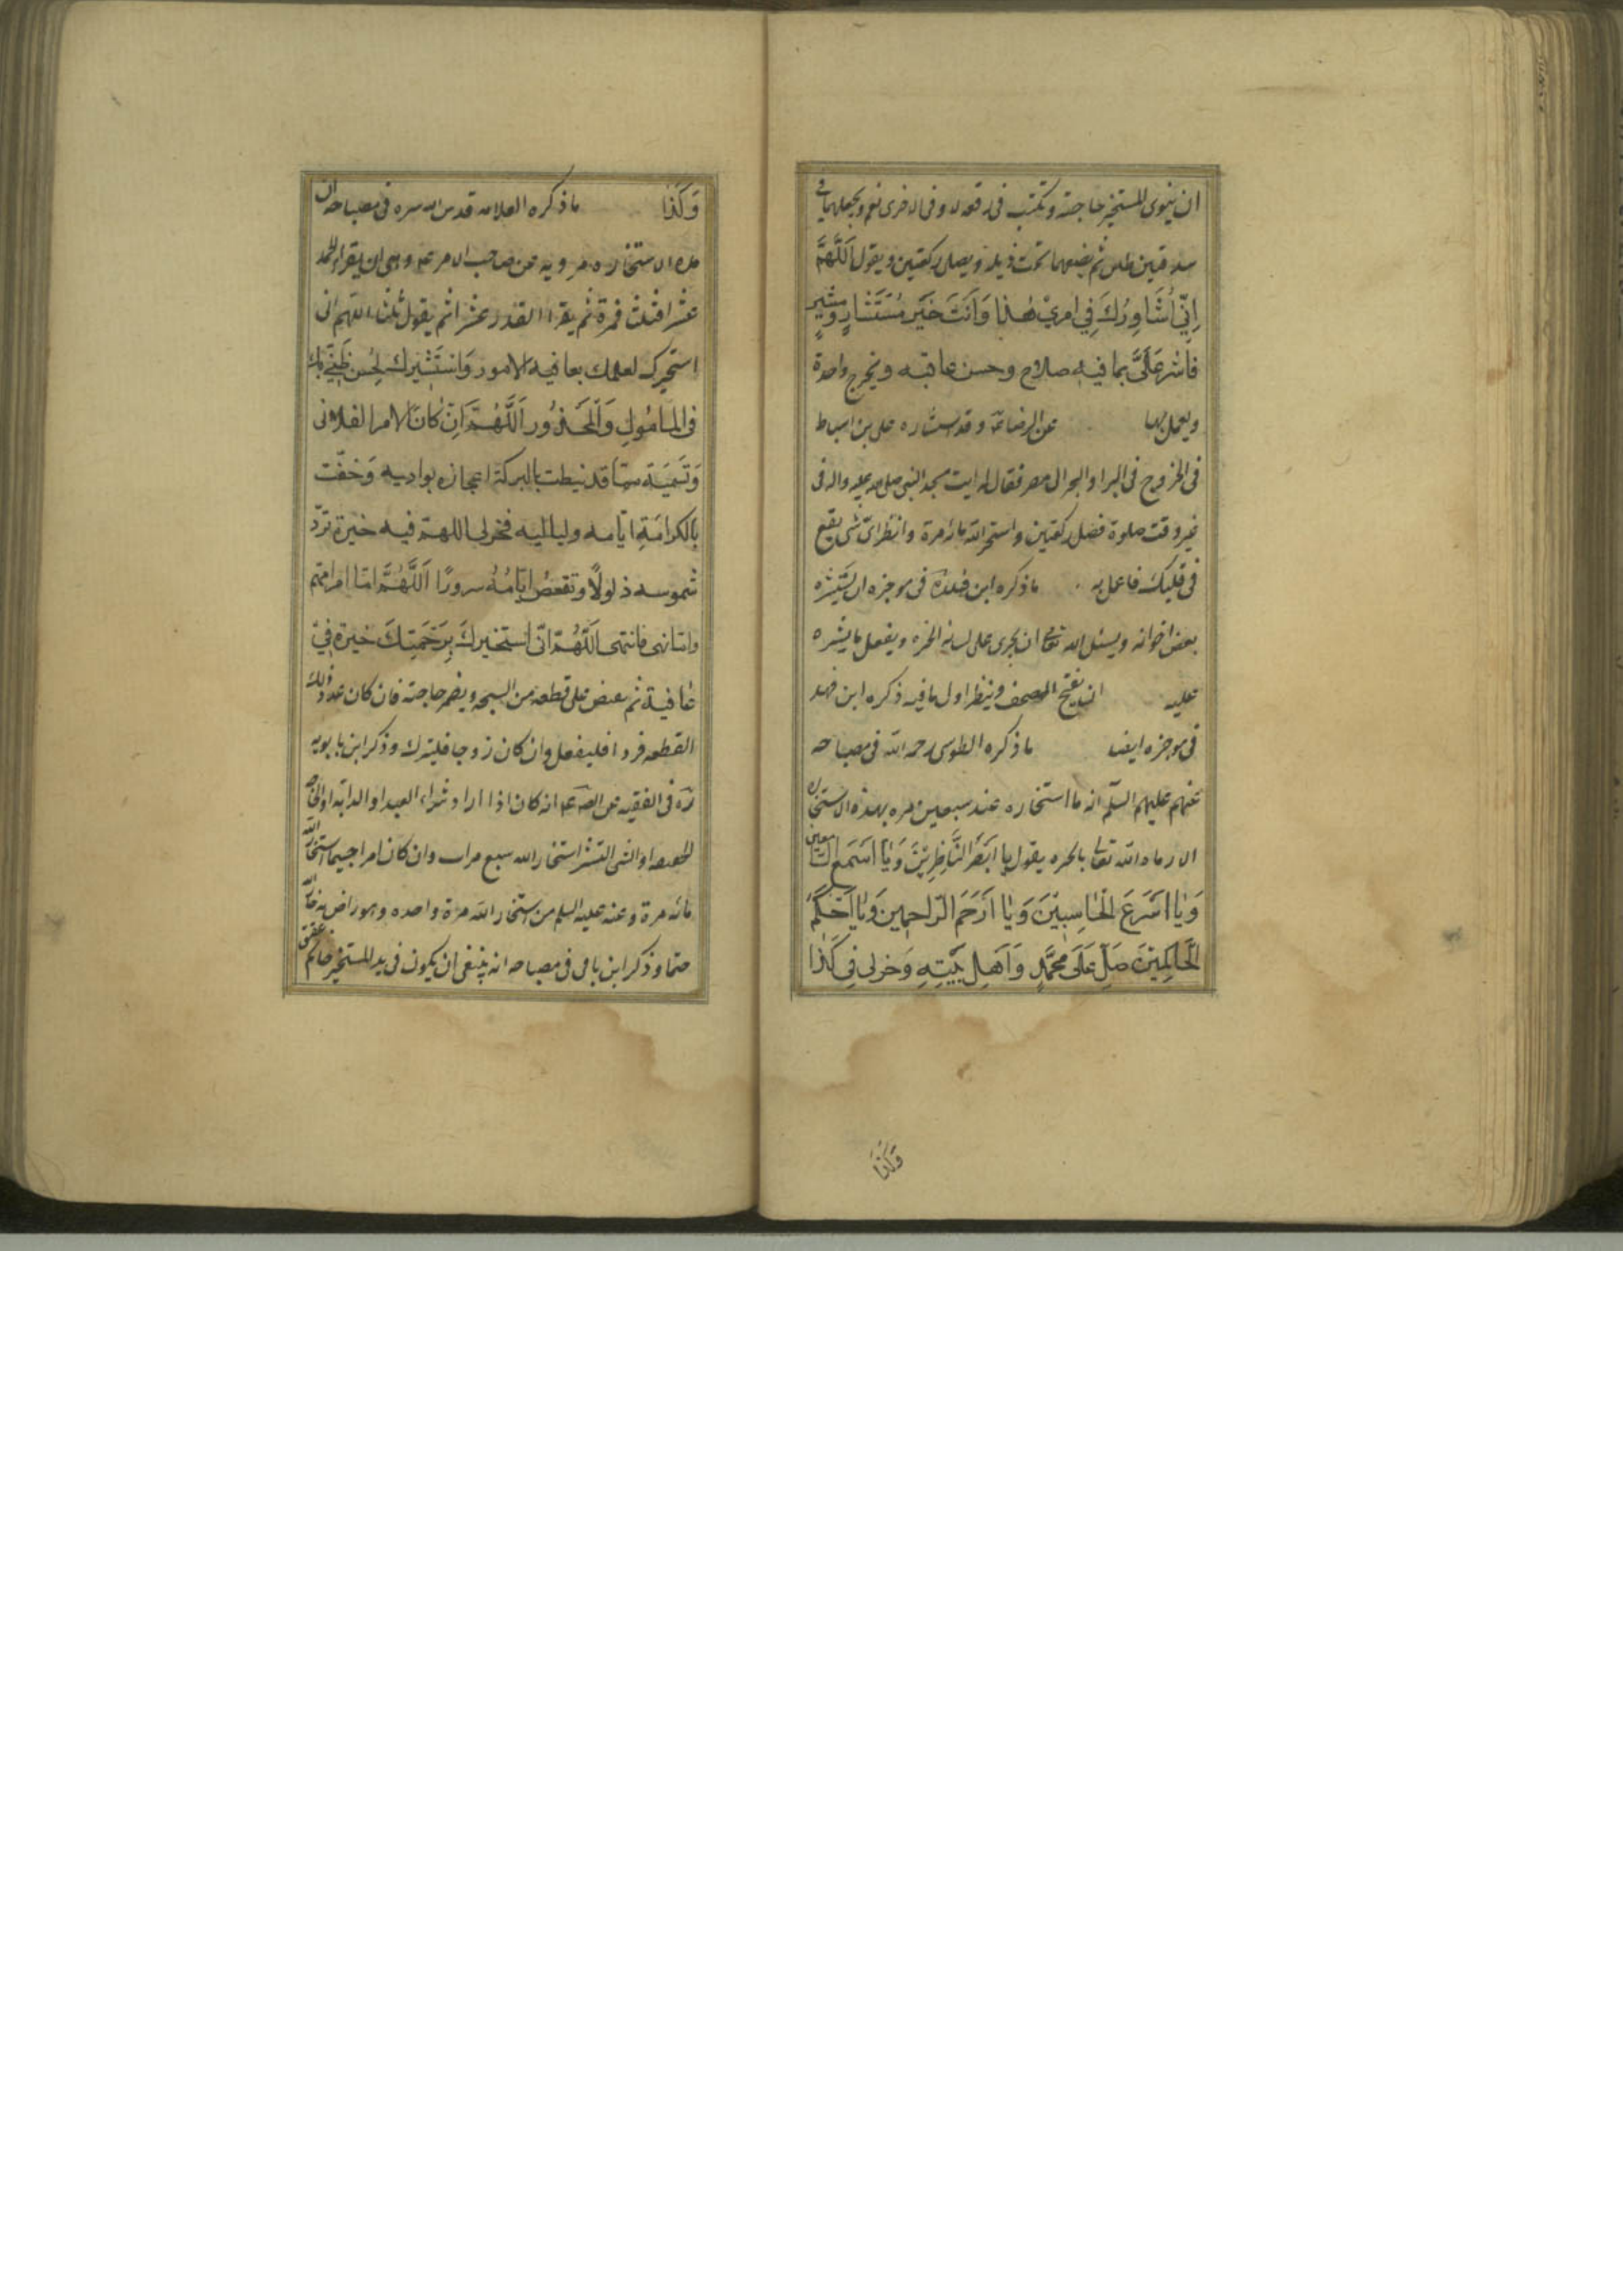 ان ينوى المستخير حاجته ويكتب فى رقعة لا وفى الاخرى نعم ويجعلهما فى
بندقتين طين ثم يضعهما تحت ذيله ويصلى ركعتين ويقول اَللّٰهُمَّ
اِنّى اُشَاوِرُكَ فِى امرىْ هٰذا وَاَنتَ خَيرَ مُستَشارٍ وَمُشيرٍ
فاشر عَلَىَّ بما فيه صلاح وحسن عاقبه ويخرج واحدة
ويعمل بها عن الرضا ع وقد استشاره على بن اسباط
فى الخروج فى البر او البحر الى مصر فقال له ايت مسجد النبى صلى الله عليه واله فى
غير وقت صلوة فصل ركعتين واستخر الله مائة مرة وانظر اى شى يقع
فى قلبك فاعمل به ما ذكره ابن فى موجزه ان يستشير
بعض اخوانه ويسئل الله تعالى ان يجرى على لسانه الخيره ويفعل ما يشيره
عليه ان يفتح المصحف وينظر اول ما فيه ذكره ابن فهد
فى موجزه ايضا ما ذكره الطوسى رحمه الله فى مصباحه
عنهم عليهم السلم انه ما استخاره عبد سبعين مره بهذه الاستخاره
الا رماه الله تعالى بالخيره يقول يا اَبصَرَ النَّاظِرِيْنَ وَيا اسمَع السامعين
وَيا اسْرَعَ الحاسِبيْنَ وَيا ارَحَم الرّاحِمين وَيا احكَمَ
الحَاكِميْنَ صَلِّ عَلَى مُحَمَّدٍ وَاَهلِ بَيتِهِ وَخر لى فِى كَذا
وَكَذا
وَكَذا ما ذكره العلامه قدس الله سره فى مصباحه ان
هذه الاستخاره مرويه عن صاحب الامر ع وهى ان يقرا الحمد
عشرا فثلث فمرة ثم يقرا القدر عشرا ثم يقول ثلثا اللهم انى
استخيرك لعلمك بعاقبة الامور وَاستَشيرك لِحُسن ظَنّى بك
فى المامُولِ وَالمحذُور اَللّٰهُمَّ اِن كانَ الامر الفلانى
وَتَسميَته مما قد نيطت بالبركة اعجازه بواديه وَحُفّت
بالكرامَةِ ايّامه ولياليه فخر لى اللهمّ فيه خيرة تردّ
شموسه ذلولًا وتقعص ايّامُهُ سرورًا اَللّٰهُمَّ امّا امر فائتمر
وامّا نهى فانتهى اَللّٰهُمَّ انّى استخيرك بِرَحمَتِكَ خيرة فِى
عافية ثم يقبض على قطعة من السبحه ويضمر حاجته فان كان عدد ذلك
القطعه فردا فليفعل وان كان زوجا فليترك وذكر ابن بابويه
ره فى الفقيه عن ع انه كان اذا اراد شراء العبد او الدابه او الحاجة
الخفيفه او الشى اليسير استخار الله سبع مرات وان كان امرا جسيما استخار الله
مائه مرة وعنه عليه السلم من استخار الله مرة واحده وهو راض به خار الله
حتما وذكر ابن باقى فى مصباحه انه ينبغى ان يكون فى يد المستخير خاتم عقيق